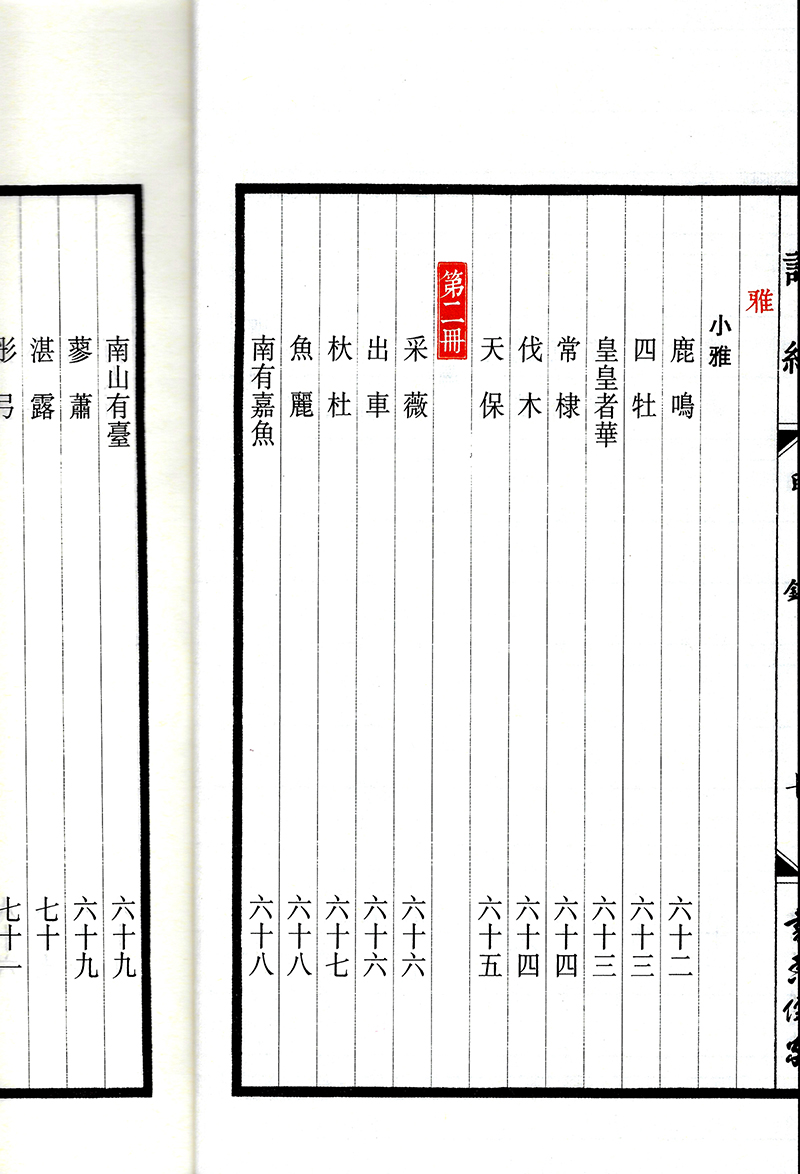 雅
小雅
鹿鳴 六十二
四牡 六十三
皇皇者華 六十三
常棣 六十四
伐木 六十四
天保 六十五
第二冊
采薇 六十六
出車 六十六
杕杜 六十七
魚麗 六十八
南有嘉魚 六十八
南山有臺 六十九
蓼蕭 六十九
湛露 七十
彤弓 七十一